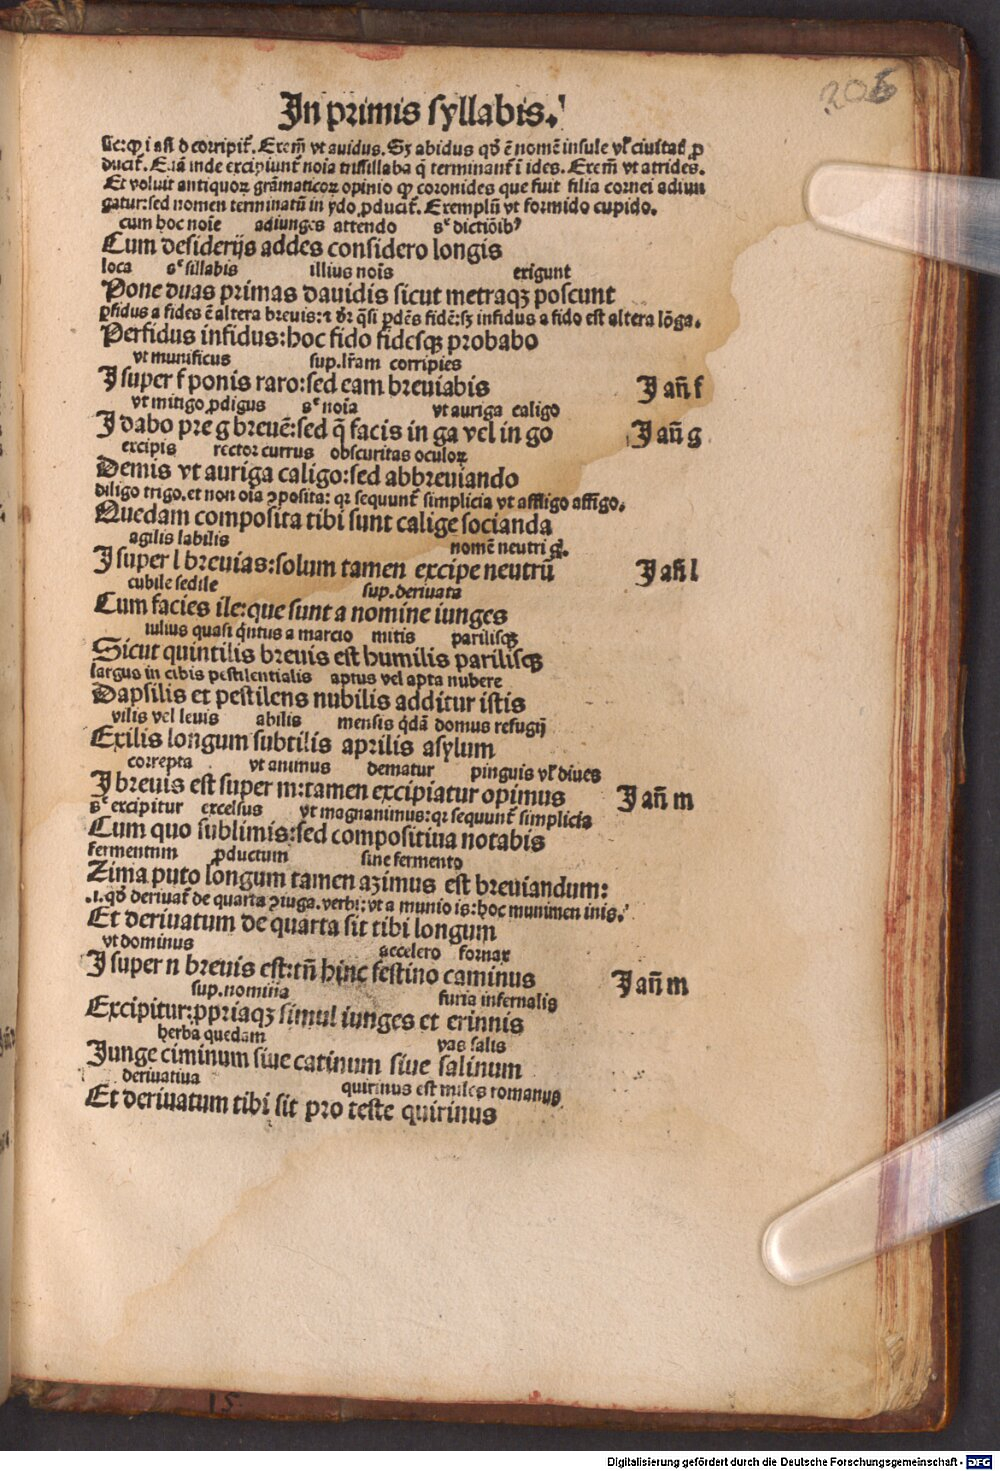 206
In primis syllabis.
sic: ꝙ i añ d corripit᷑. Exem̄ vt auidus. Sꝫ abidus qď ē nomē insule vl᷑ ciuitat᷑ ꝓ
ducit᷑. Etiā inde excipiunt᷑ noīa trissillaba q̄ terminant᷑ ī ides. Exem̄ vt atrides.
Et voluit antiquoꝝ grāmaticoꝝ opinio ꝙ coronides que fuit filia cornei adiun
gatur: sed nomen terminatū in ydo ꝓducit᷑. Exemplū vt formido cupido.
cum hoc noīe adiunges attendo sꝫ dictiōibꝰ
Cum desiderijs addes considero longis
loca sꝫ sillabis illius noīs exigunt
Pone duas primas dauidis sicut metraqꝫ poscunt
ꝑfidus a fides ē altera breuis: ⁊ dr̄ q̄si ꝑdēs fidē: sꝫ infidus a fido est altera lōga.
Perfidus infidus: hoc fido fidesqꝫ probabo
vt munificus sup. lr̄am corripies
I super f ponis raro: sed eam breuiabis I añ f
vt mitigo ꝓdigus sꝫ noīa vt auriga caligo
I dabo pre g breuē: sed q̄ facis in ga vel in go I añ g
excipis rector currus obscuritas oculoꝝ
Demis vt auriga caligo: sed abbreuiando
diligo trigo. et non oīa ꝯposita: qꝛ sequunt᷑ simplicia vt affligo affigo.
Quedam composita tibi sunt calige socianda
agilis labilis nomē neutri gñ.
I super l breuias: solum tamen excipe neutrū I añ l
cubile sedile sup. deriuata
Cum facies ile: que sunt a nomine iunges
iulius quasi q̄ntus a marcio mitis parilisqꝫ
Sicut quintilis breuis est humilis parilisqꝫ
largus in cibis pestilentialis aptus vel apta nubere
Dapsilis et pestilens nubilis additur istis
vilis vel leuis abilis mensis q̄dā domus refugij
Exilis longum subtilis aprilis asylum
correpta vt animus dematur pinguis vl᷑ diues
I breuis est super m: tamen excipiatur opimus I añ m
sꝫ excipitur excelsus vt magnanimus: qꝛ sequunt᷑ simplicia
Cum quo sublimis: sed compositiua notabis
fermentum ꝓductum sine fermento
Zima puto longum tamen azimus est breuiandum:
.i. qď deriuat᷑ de quarta ꝯiuga. verbi: vt a munio is: hoc munimen inis.
Et deriuatum de quarta sit tibi longum
vt dominus accelero fornax
I super n breuis est: tñ hinc festino caminus I añ m
sup. nomina furia infernalis
Excipitur: ꝓpriaqꝫ simul iunges et erinnis
herba quedam vas salis
Iunge ciminum siue catinum siue salinum
deriuatiua quirinus est miles romanus
Et deriuatum tibi sit pro teste quirinus
15
Digitalisierung gefördert durch die Deutsche Forschungsgemeinschaft - DFG